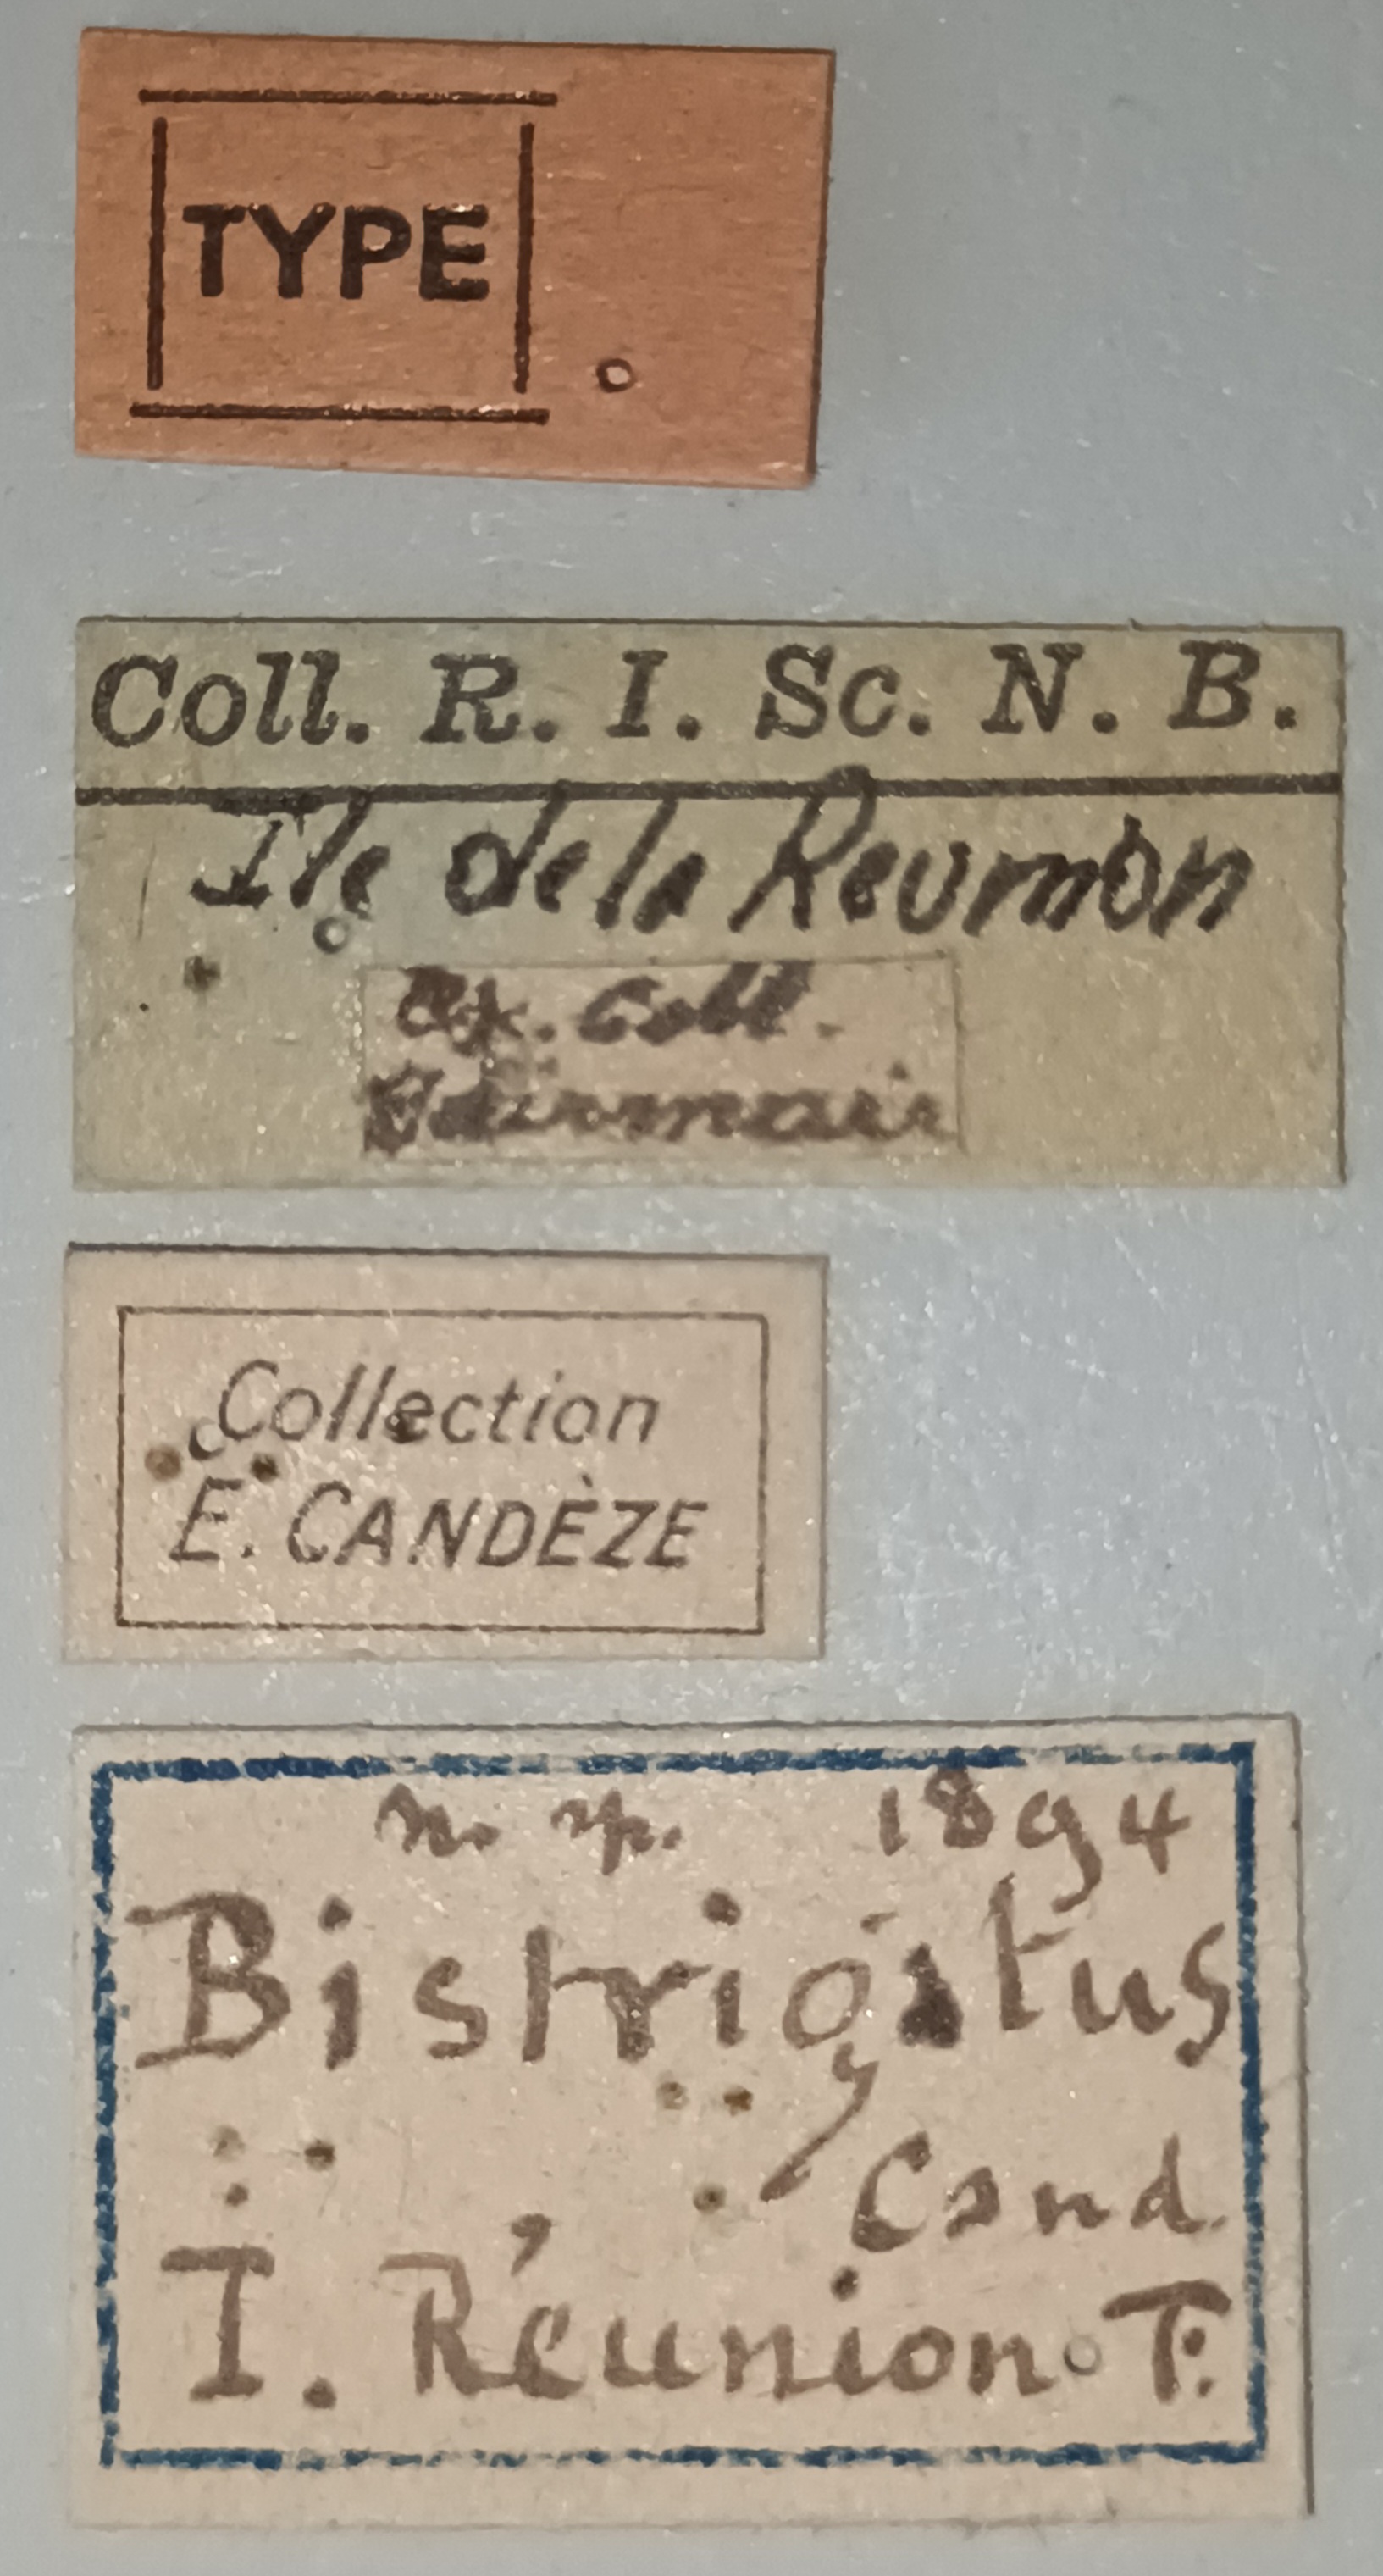 TYPE
Coll. R. I. Sc. N. B.
Ile de la Reunion
Ex. Coll.
Fairmair
Collection
E. CANDÈZE
n. sp. 1894
Bistrigatus
Cand.
I. Réunion T.